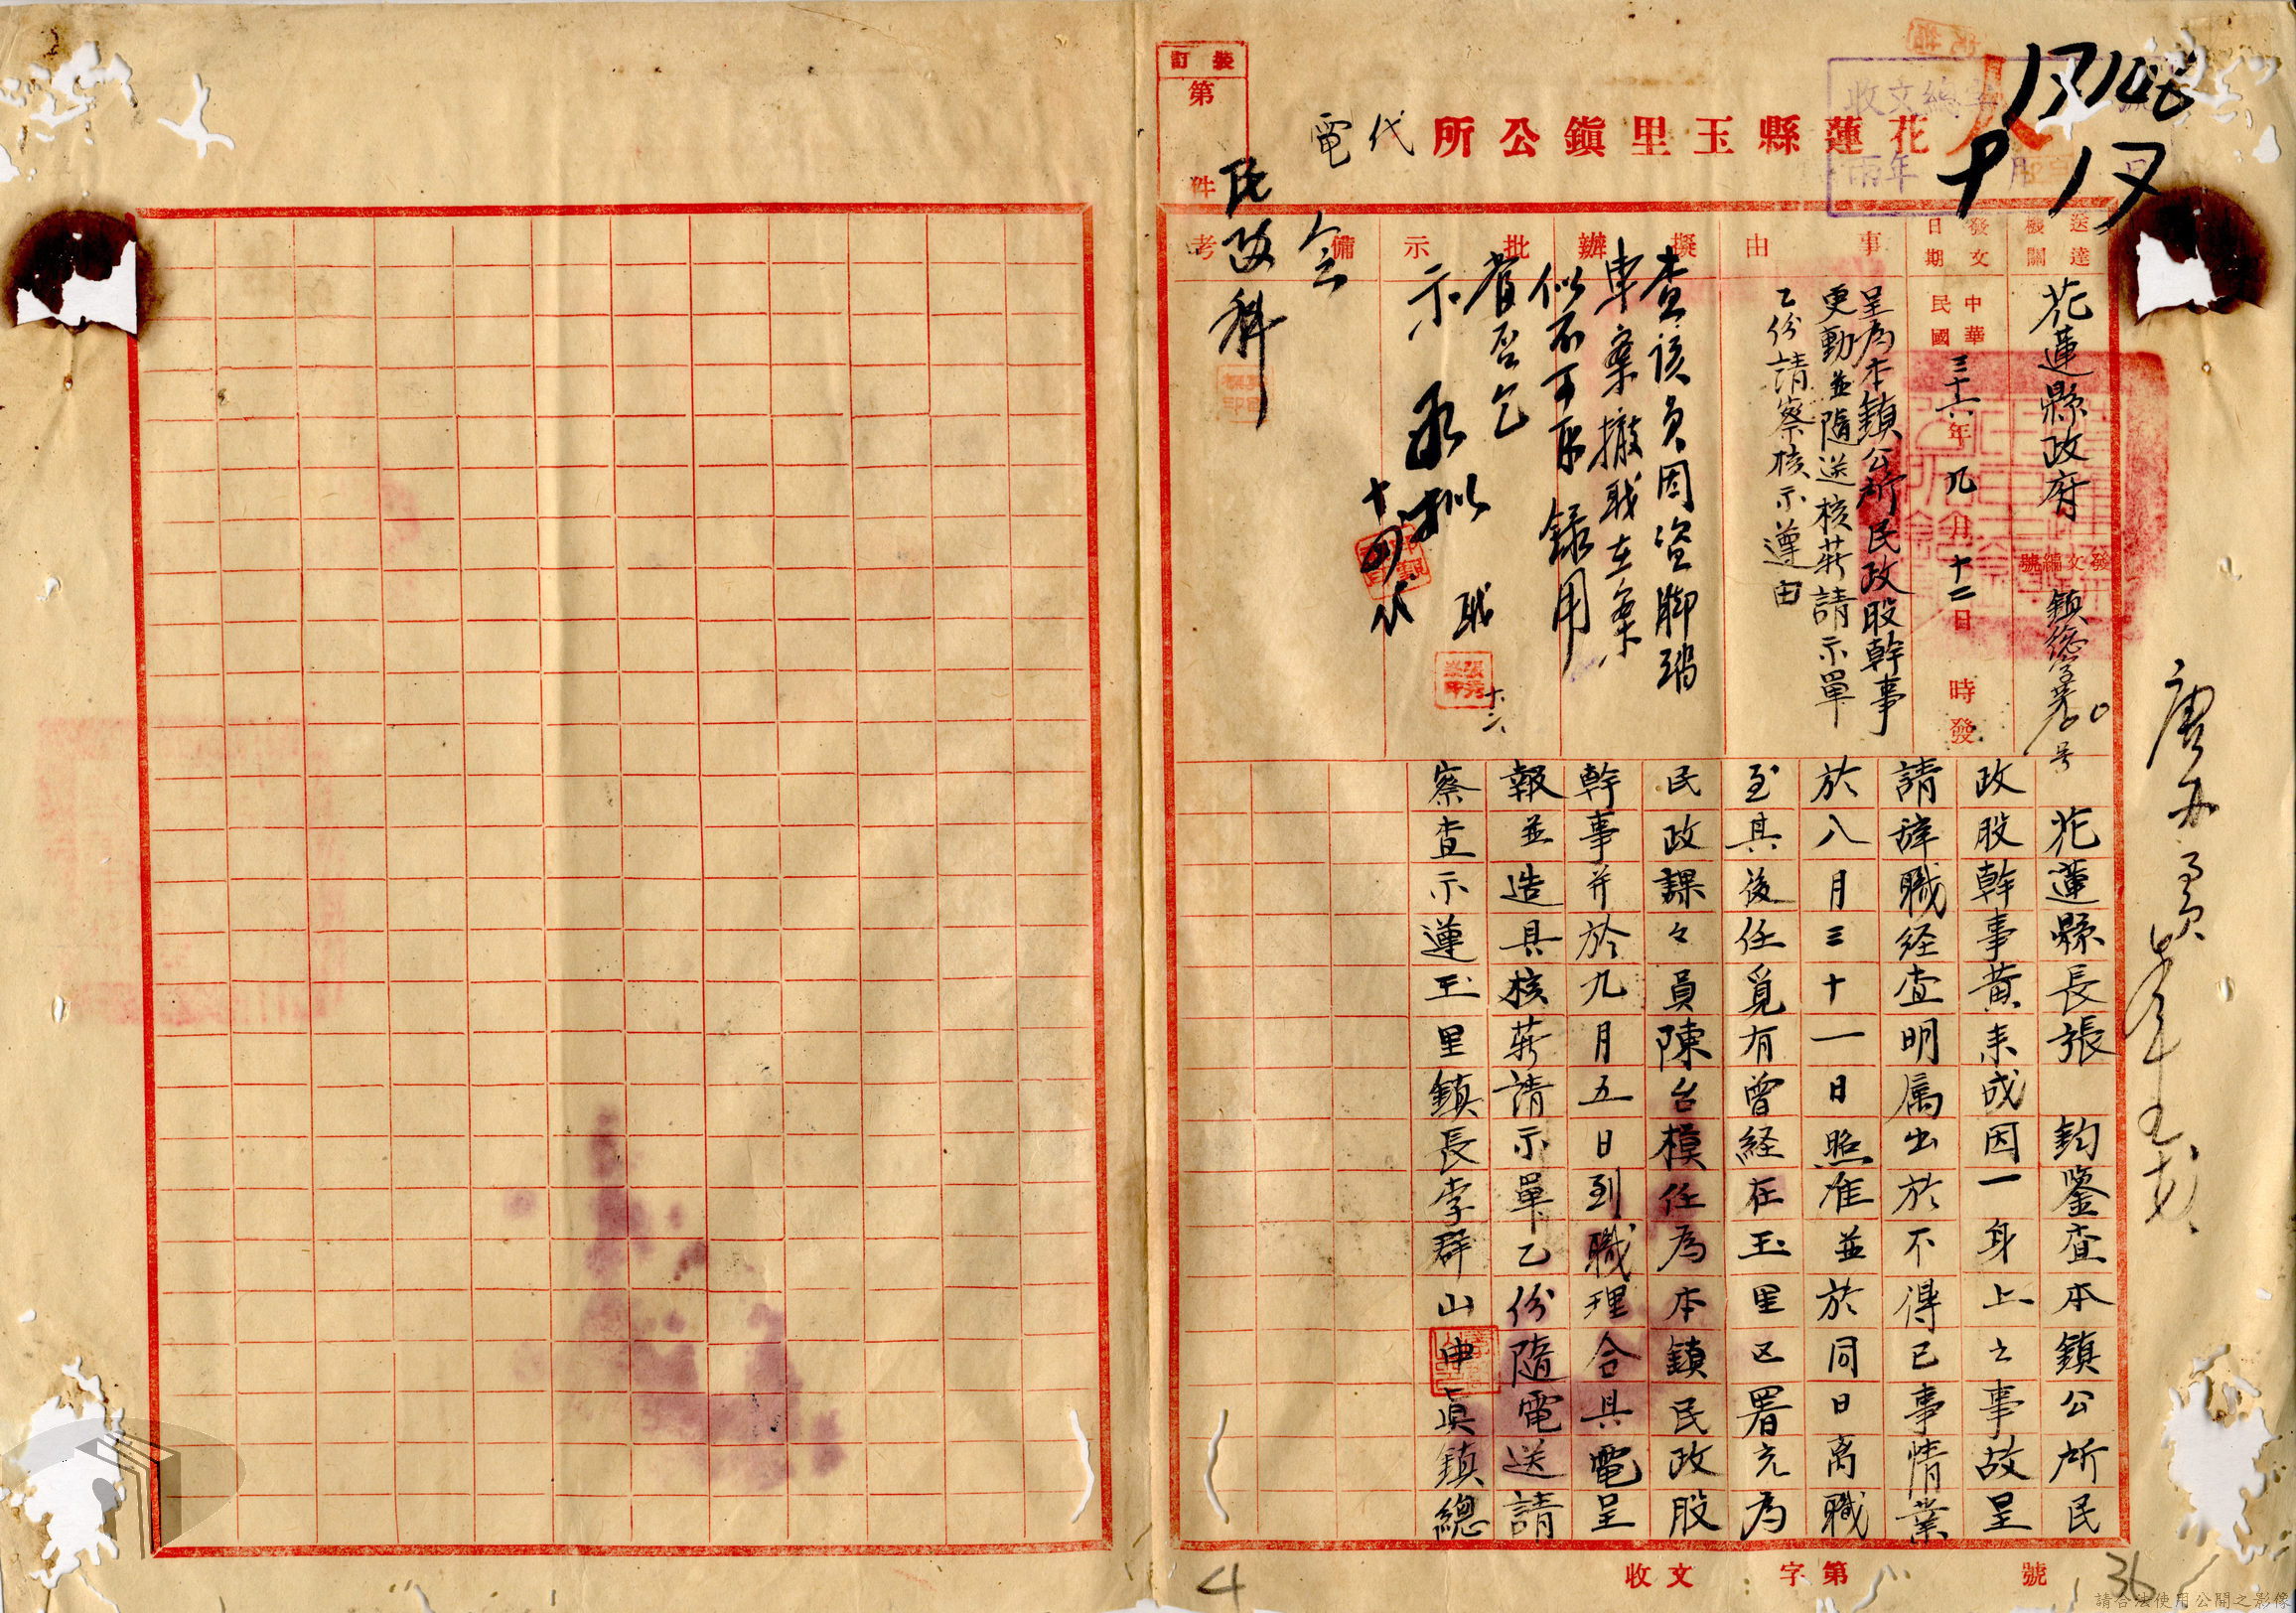 花蓮縣玉里鎮公所代電
裝訂
第
件
收文總字
號
年
月
日
13148
9 17
送達機關
花蓮縣政府
發文編號
鎮總字第
号
發文日期
中華民國三十六年九月十二日
時發
事由
呈為本鎮公所民政股幹事
更動並隨送核薪請示單
乙份請察核示遵由
擬辦
查該員因盜脚踏
車案撤職在案
似不可再錄用
當否乞
示
職
十六
批示
承拟
備考
会
民政科
花蓮縣長張 鈞鑒查本鎮公所民
政股幹事黃来成因一身上之事故呈
請辞職経查明属出於不得已事情業
於八月三十一日照准並於同日离職
至其後任覓有曾経在玉里区署充為
民政課々員陳台模任為本鎮民政股
幹事并於九月五日到職理合具電呈
報並造具核薪請示單乙份隨電送請
察查示遵玉里鎮長李群山申眞鎮總
收文
字第
號
4
36
請合法使用公開之影像